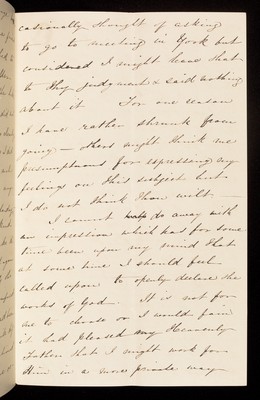 casionally thought of asking
to go to meeting in York but
considered I might leave that
to thy judgment & said nothing
about it For one reason
I have rather shrunk from
going — others might think me
presumptuous for expressing my
feelings on this subject but
I do not think thou wilt —
I cannot do away with
an impression which has for some
time been upon my mind that
at some time I should feel
called upon to openly declare the
works of God — It is not for
me to choose or I would fain
it had pleased my Heavenly
Father that I might work for
Him in a more private way